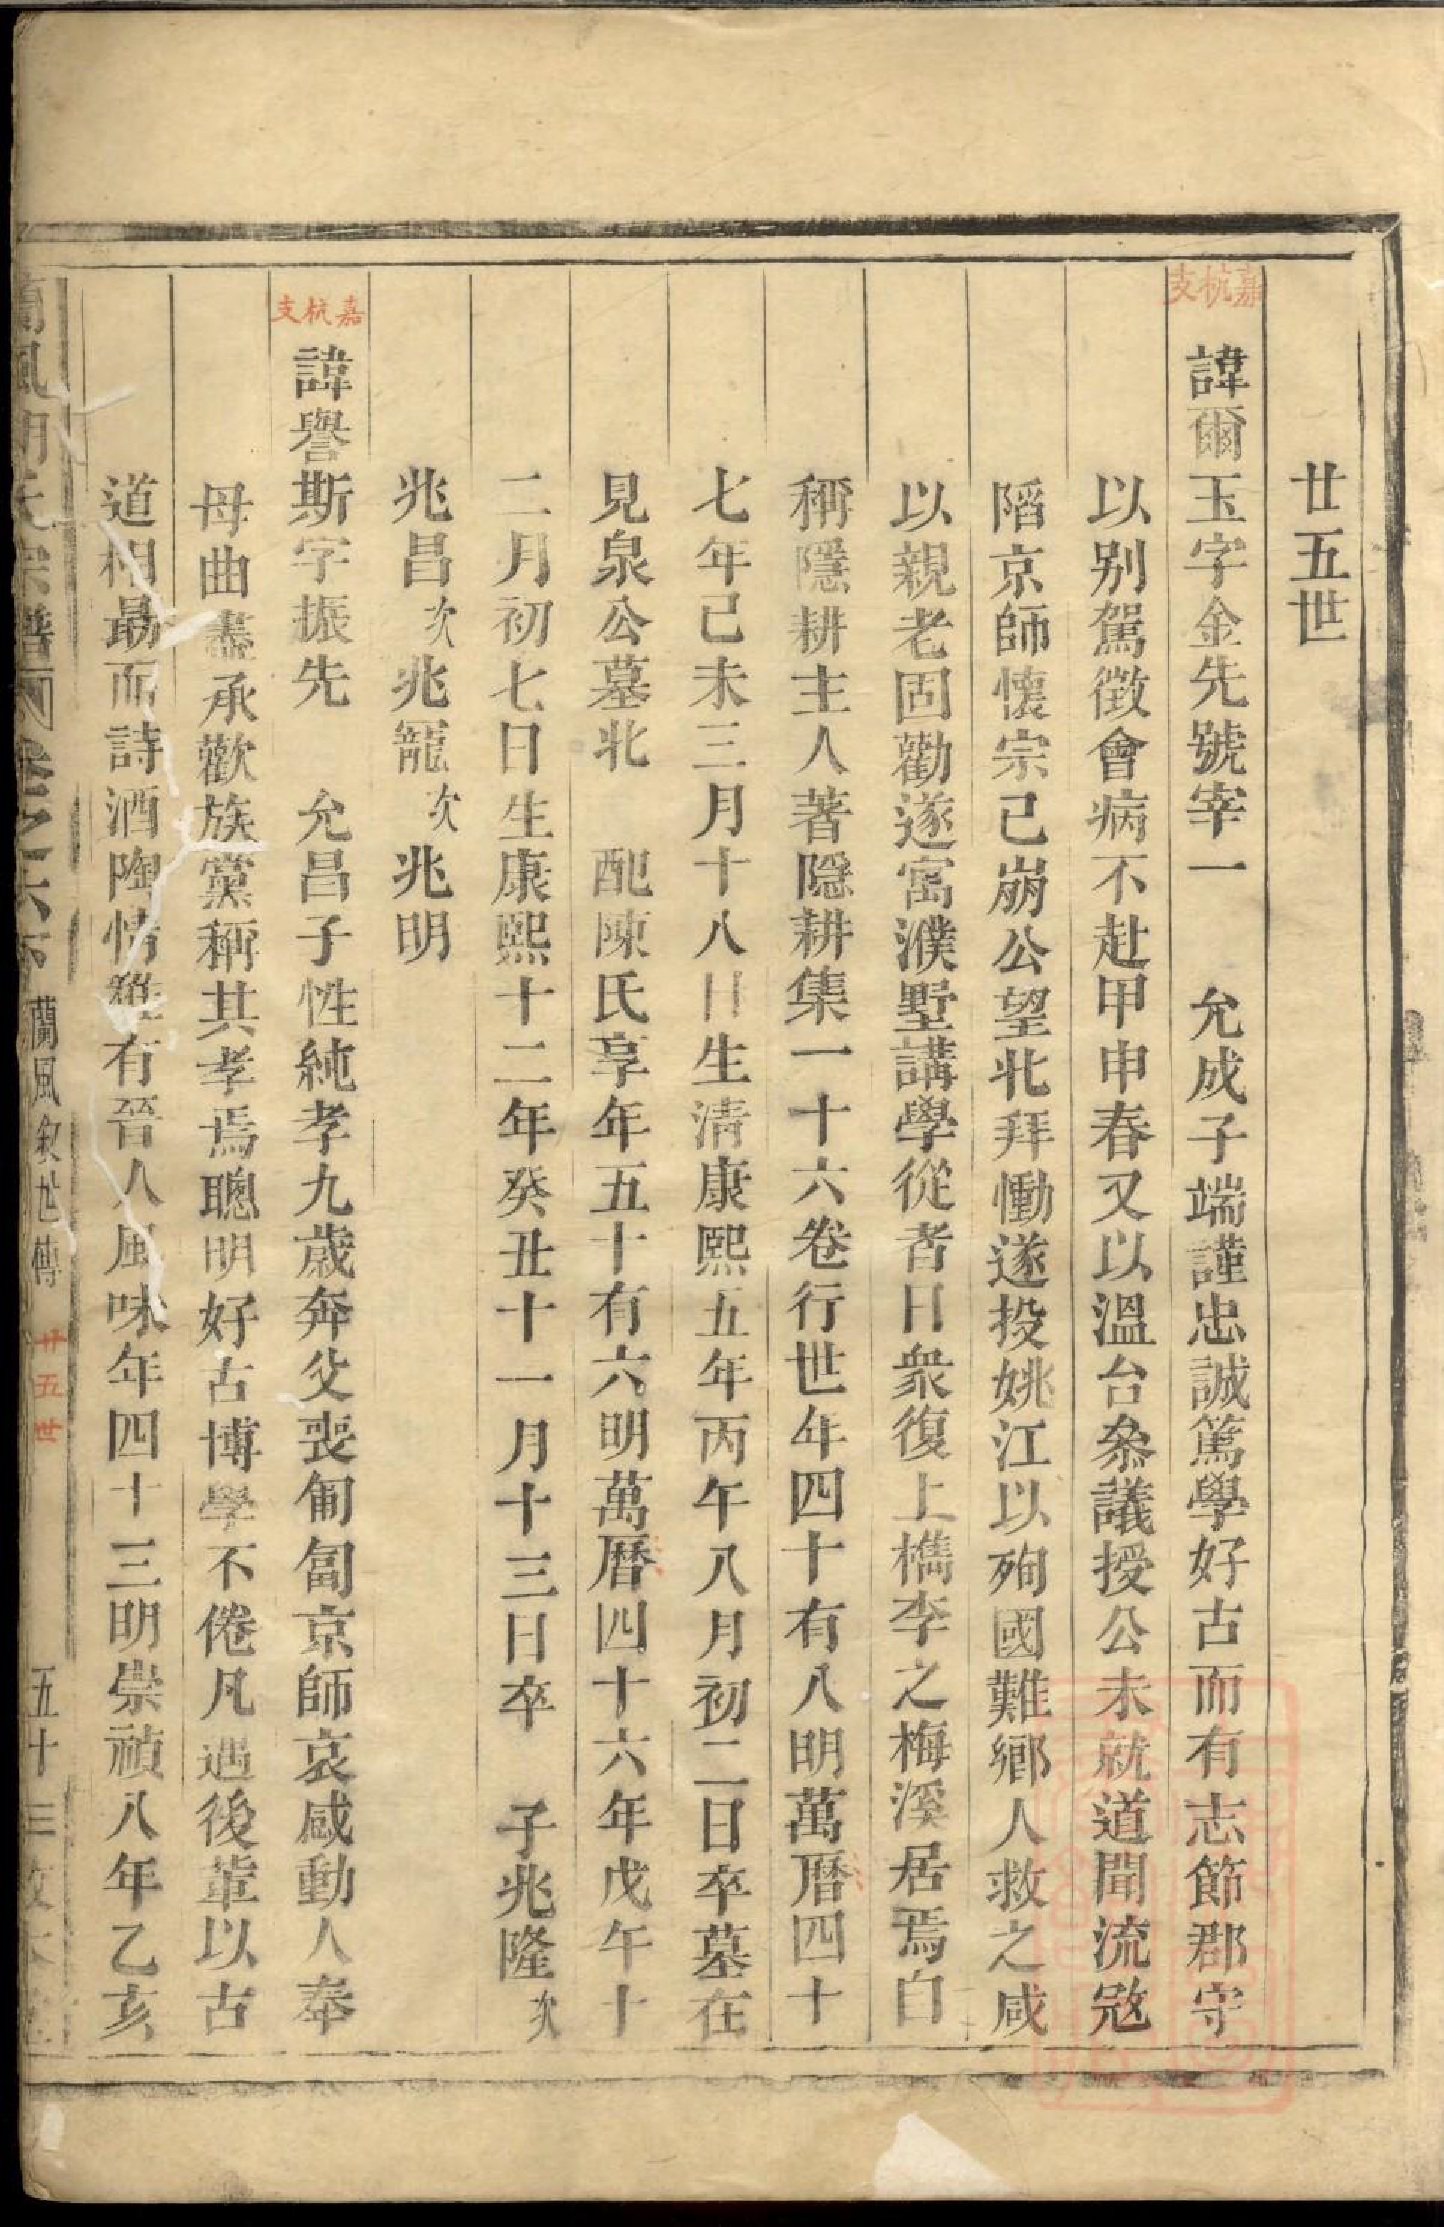 廿五世
嘉杭支
諱爾玉字金先號宰一　允成子端謹忠誠篤學好古而有志節郡守
以别駕徵會病不赴甲申春又以溫台叅議授公未就道聞流宼
陷京師懷宗己崩公望北拜慟遂投姚江以殉國難鄉人救之咸
以親老固勸遂寓濮墅講學從者日衆復上檇李之梅溪居焉自
稱隱耕主人著隐耕集一十六卷行世年四十有八明萬曆四十
七年己未三月十八日生淸康熙五年丙午八月初二日卒墓在
見泉公墓北　配陳氏享年五十有六明萬曆四十六年戊午十
二月初七日生康熙十二年癸丑十一月十三日卒　子兆隆次
兆昌次兆寵次兆明
嘉杭支
諱譽斯字振先　允昌子性純孝九歲奔父喪匍匐京師哀感動人奉
母曲盡承歡族黨稱其孝焉聰明好古博學不倦凡遇後輩以古
道相勗而詩酒陶情雅有晉人風味年四十三明崇禎八年乙亥
風 氏宗譜 卷之六下 蘭風敘世傳 廿五世 五十三